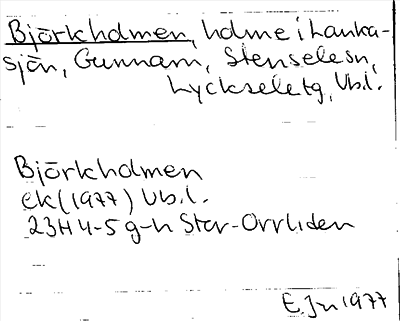 Björkholmen, holme i Lanka-
sjön, Gunnarn, Stenselesn,
Lyckseletg, Vb.l.
Björkholmen
ek (1977) Vb.l.
23H 4-5 g-h Stor-Orrliden
E. Jn 1977